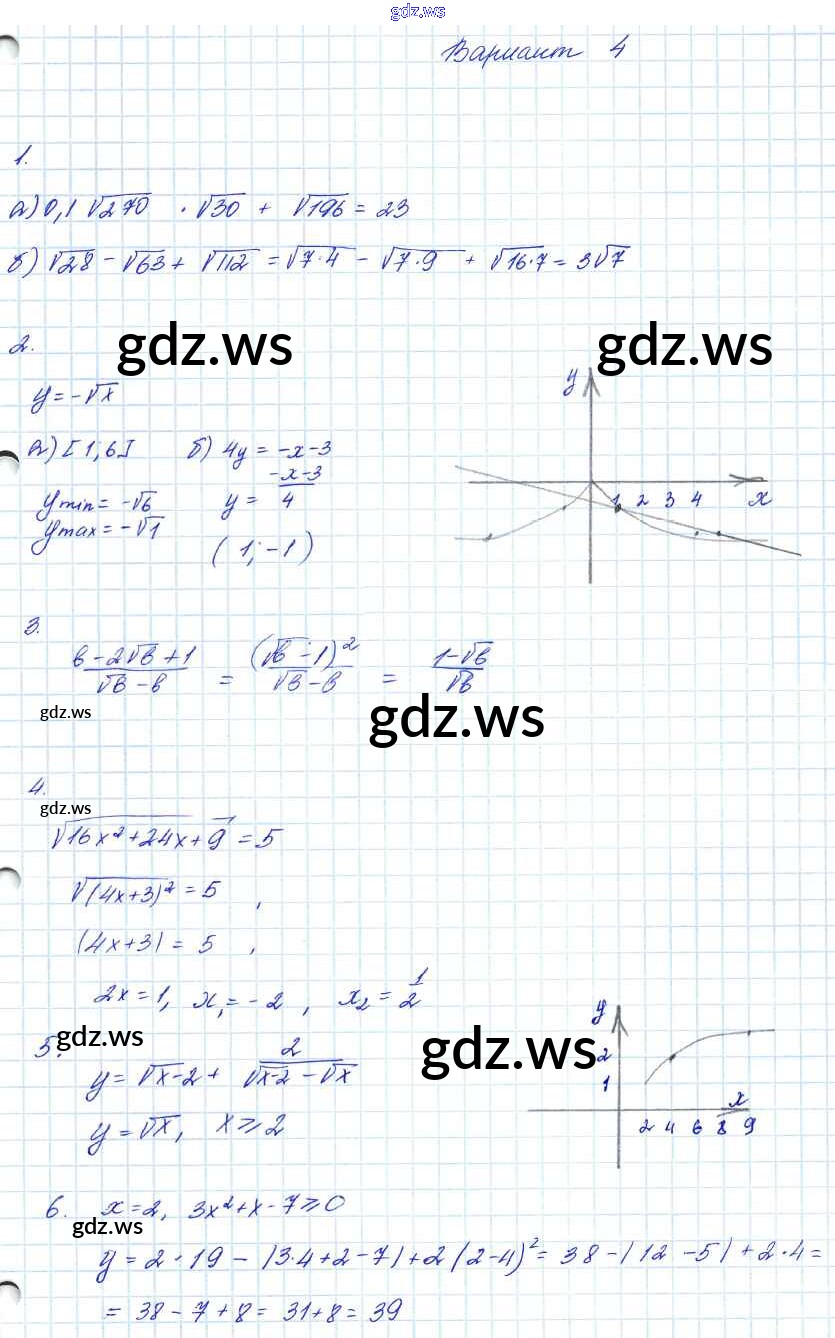 gdz.ws
Вариант 4
1.
а) 0,1 √270 · √30 + √196 = 23
б) √28 - √63 + √112 = √7·4 - √7·9 + √16·7 = 3√7
2.
gdz.ws gdz.ws
y = -√x
а) [1; 6] б) 4y = -x-3
y min = -√6 y = (-x-3)/4
y max = -√1 (1; -1)
y
1 2 3 4 x
3.
(в - 2√в + 1)/(√в - в) = (√в - 1)²/(√в - в) = (1-√в)/√в
gdz.ws
gdz.ws
4.
gdz.ws
√16x² + 24x + 9 = 5
√(4x+3)² = 5 ,
|4x+3| = 5 ,
2x = 1, x₁ = -2 , x₂ = 1/2
5.
gdz.ws
gdz.ws
y = √x-2 + 2/(√x-2 - √x)
y = √x, x ⩾ 2
y
2
1
x
2 4 6 8 9
6. x = 2, 3x² + x - 7 ⩾ 0
gdz.ws
y = 2 · 19 - |3·4 + 2 - 7| + 2 (2-4)² = 38 - |12 - 5| + 2·4 =
= 38 - 7 + 8 = 31 + 8 = 39
gdz.ws